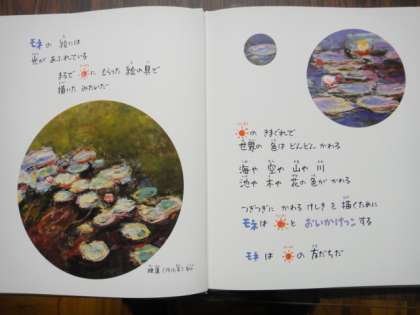 モネの 絵には
光が あふれている
まるで に もらった 絵の具で
描いた みたいだ
睡蓮
の きまぐれで
世界の 色は どんどん かわる
海や 空や 山や 川
池や 木や 花の 色が かわる
つぎつぎに かわる けしきを 描くために
モネは と おいかけっこ する
モネ は の 友だちだ